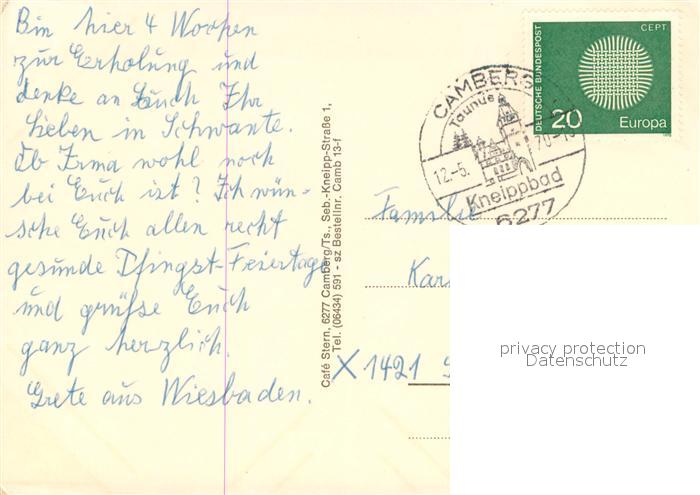 Bin hier 4 Wochen
zur Erholung und
denke an Euch Ihr
lieben in Schwante.
Ob Irma wohl noch
bei Euch ist? Ich wün-
sche Euch allen recht
gesunde Pfingst-Feiertage
und grüße Euch
ganz herzlich.
Grete aus Wiesbaden.
Café Stern, 6277 Camberg/Ts., Seb.-Kneipp-Straße 1,
Tel. (06434) 591 - sz Bestellnr. Camb 13-f
CEPT
DEUTSCHE BUNDESPOST
20 Europa
CAMBERG
Taunus
12.-5. 70-
Kneippbad
6277
Familie
Kar
X 1421
privacy protection
Datenschutz